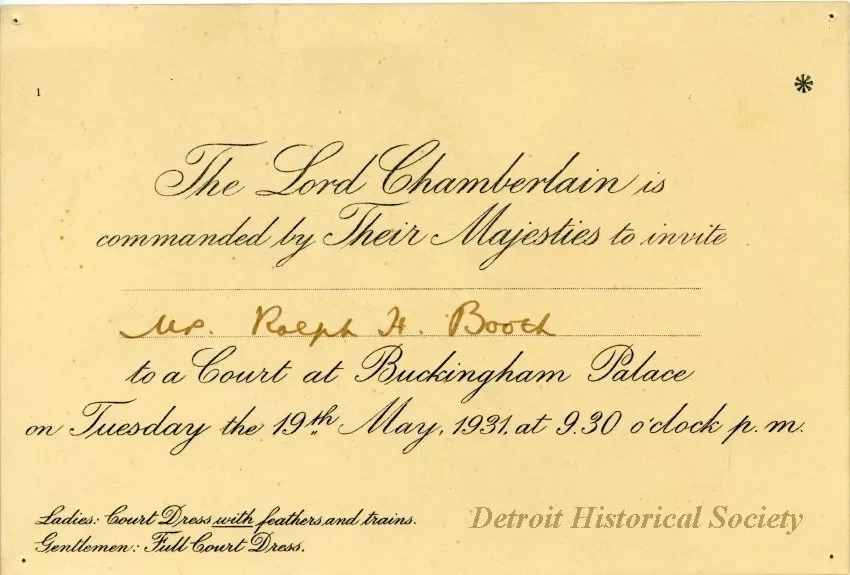 1 *
The Lord Chamberlain is
commanded by Their Majesties to invite
Mr. Ralph H. Booth
to a Court at Buckingham Palace
on Tuesday the 19th May, 1931. at 9.30 o'clock p.m.
Ladies: Court Dress with feathers and trains.
Gentlemen: Full Court Dress.
Detroit Historical Society